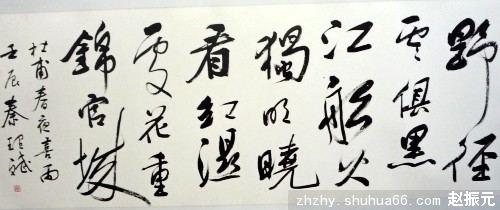 野径
雲俱黑
江船火
獨明曉
看紅濕
處花重
錦官城
杜甫春夜喜雨
壬辰秦
zhzhy.shuhua66.com 赵振元